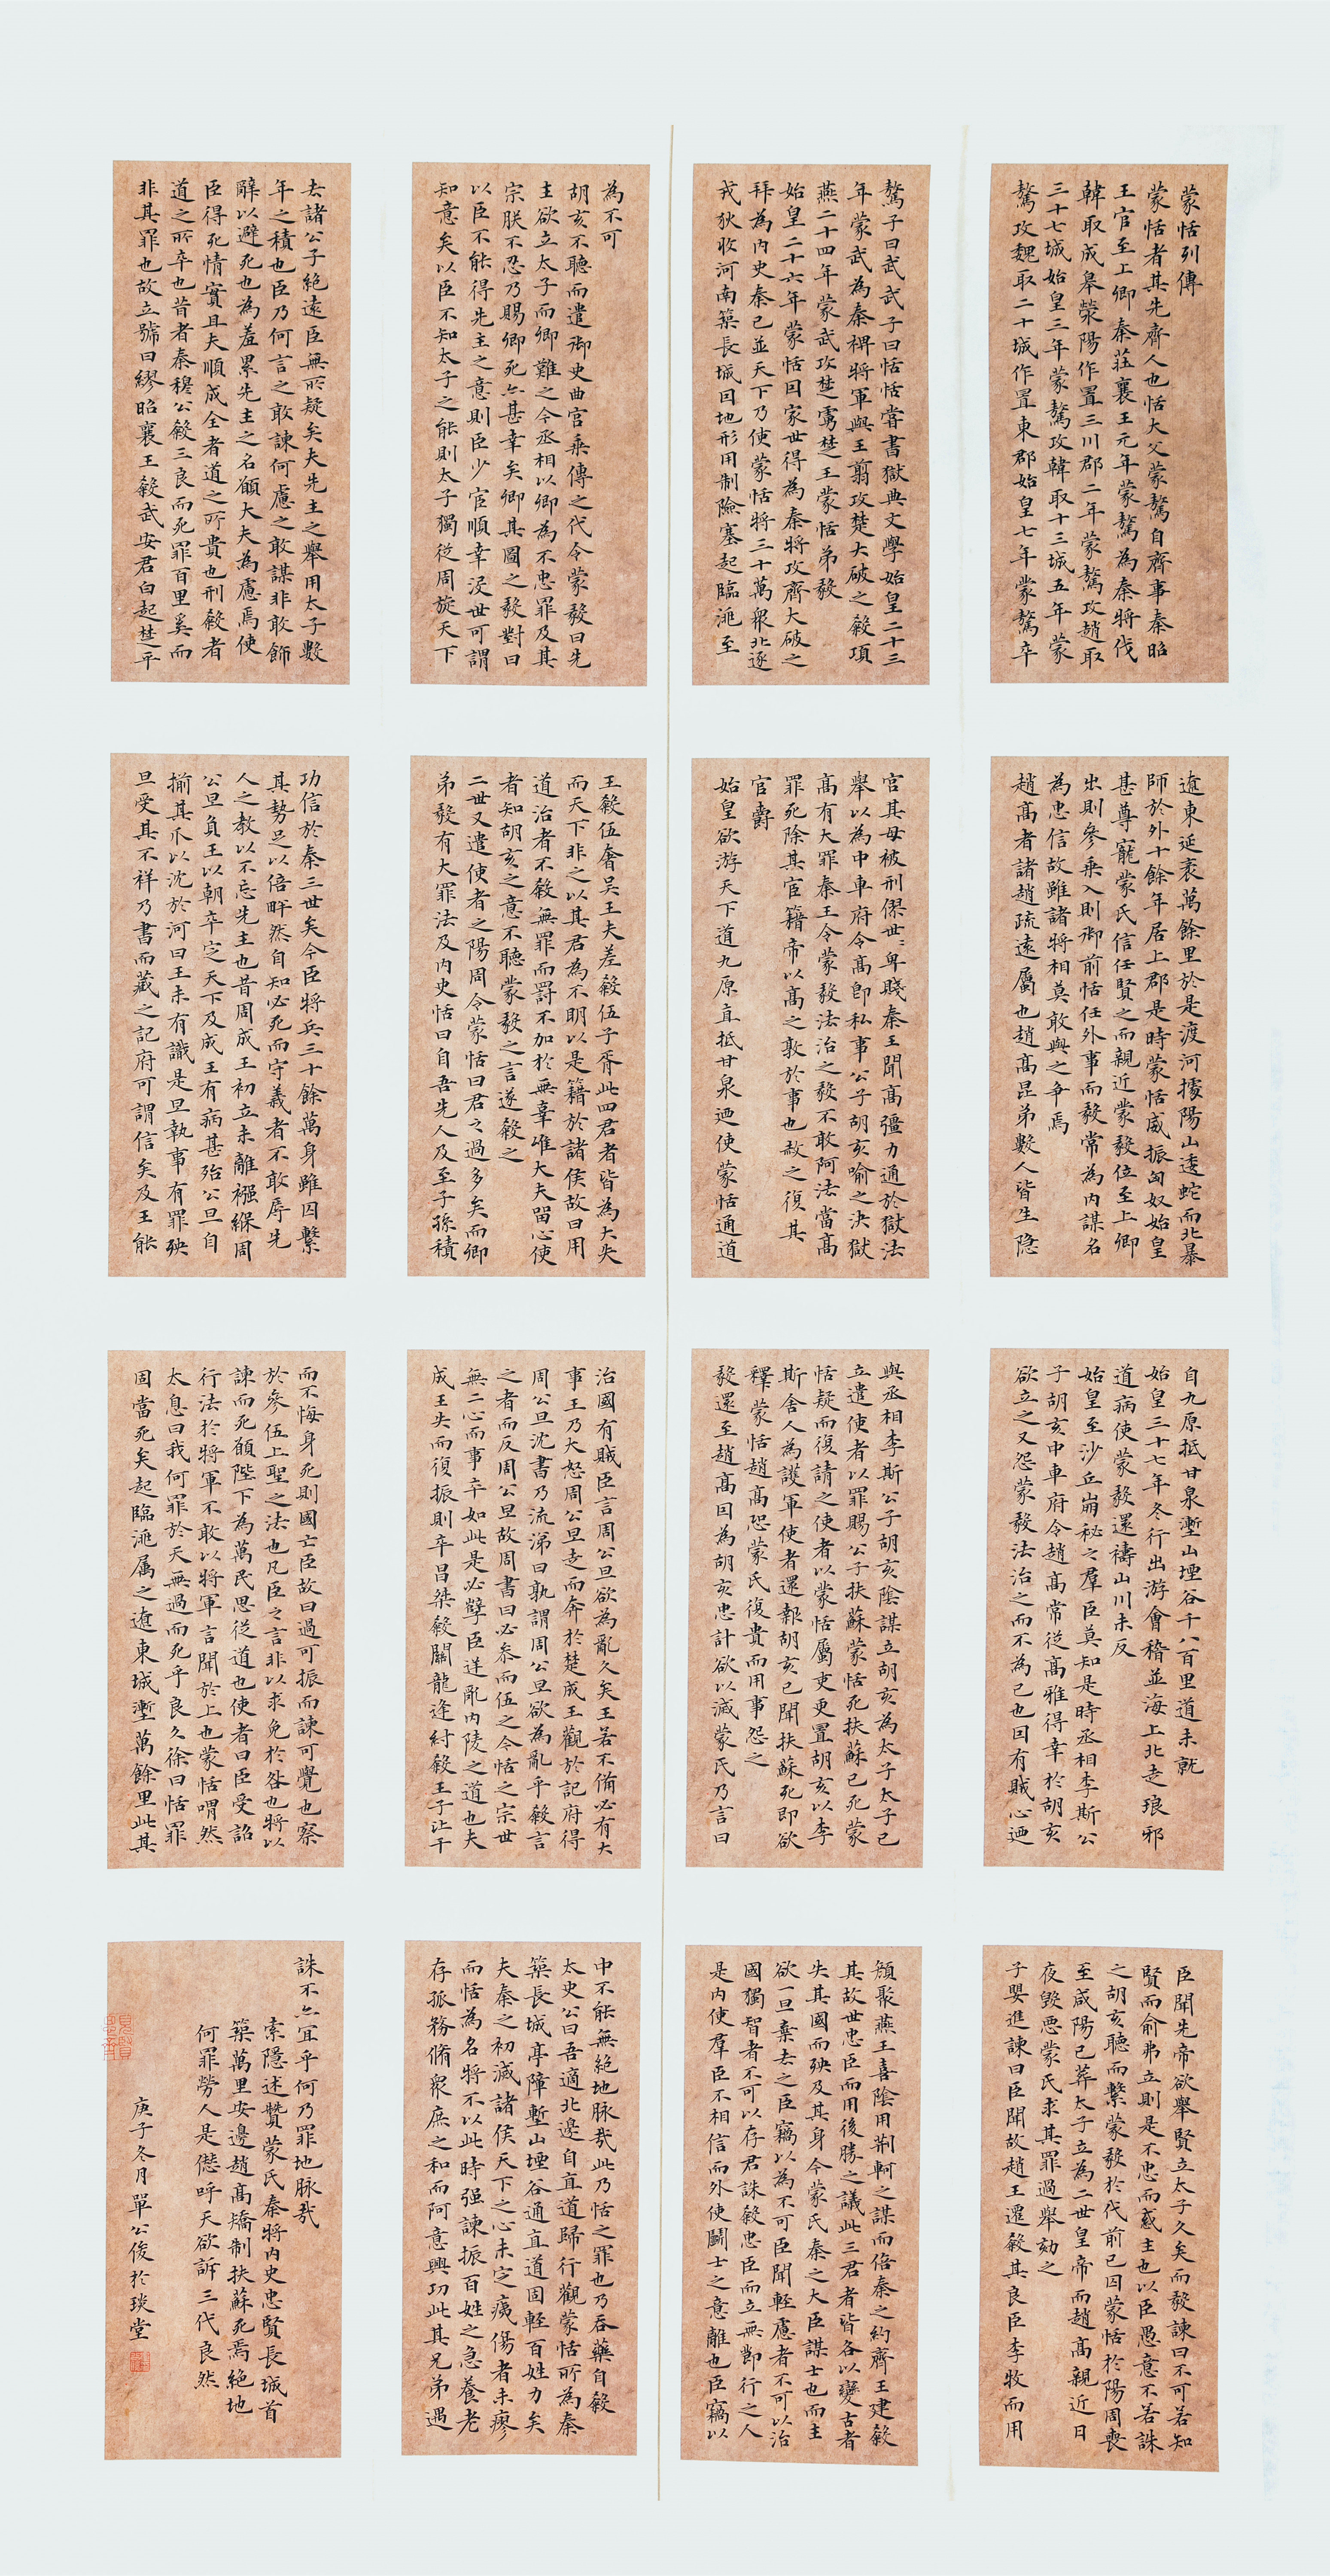 蒙恬列傳
蒙恬者其先齊人也恬大父蒙驁自齊事秦昭
王官至上卿秦莊襄王元年蒙驁為秦將伐
韓取成皋滎陽作置三川郡二年蒙驁攻趙取
三十七城始皇三年蒙驁攻韓取十三城五年蒙
驁攻魏取二十城作置東郡始皇七年蒙驁卒
驁子曰武武子曰恬恬嘗書獄典文學始皇二十三
年蒙武為秦裨將軍與王翦攻楚大破之殺項
燕二十四年蒙武攻楚虜楚王蒙恬弟毅
始皇二十六年蒙恬因家世得為秦將攻齊大破之
拜為內史秦已並天下乃使蒙恬將三十萬眾北逐
戎狄收河南築長城因地形用制險塞起臨洮至
遼東延袤萬餘里於是渡河據陽山逶蛇而北暴
師於外十餘年居上郡是時蒙恬威振匈奴始皇
甚尊寵蒙氏信任賢之而親近蒙毅位至上卿
出則參乘入則御前恬任外事而毅常為內謀名
為忠信故雖諸將相莫敢與之爭焉
趙高者諸趙疏遠屬也趙高昆弟數人皆生隱
宮其母被刑僇世〻卑賤秦王聞高彊力通於獄法
舉以為中車府令高即私事公子胡亥喻之決獄
高有大罪秦王令蒙毅法治之毅不敢阿法當高
罪死除其宦籍帝以高之敦於事也赦之復其
官爵
始皇欲游天下道九原直抵甘泉迺使蒙恬通道
自九原抵甘泉塹山堙谷千八百里道未就
始皇三十七年冬行出游會稽並海上北走琅邪
道病使蒙毅還禱山川未反
始皇至沙丘崩祕之羣臣莫知是時丞相李斯公
子胡亥中車府令趙高常從高雅得幸於胡亥
欲立之又怨蒙毅法治之而不為己也因有賊心迺
與丞相李斯公子胡亥陰謀立胡亥為太子太子已
立遣使者以罪賜公子扶蘇蒙恬死扶蘇已死蒙
恬疑而復請之使者以蒙恬屬吏更置胡亥以李
斯舍人為護軍使者還報胡亥已聞扶蘇死即欲
釋蒙恬趙高恐蒙氏復貴而用事怨之
毅還至趙高因為胡亥忠計欲以滅蒙氏乃言曰
臣聞先帝欲舉賢立太子久矣而毅諫曰不可若知
賢而俞弗立則是不忠而惑主也以臣愚意不若誅
之胡亥聽而繫蒙毅於代前已囚蒙恬於陽周喪
至咸陽已葬太子立為二世皇帝而趙高親近日
夜毀惡蒙氏求其罪過舉劾之
子嬰進諫曰臣聞故趙王遷殺其良臣李牧而用
顏聚燕王喜陰用荊軻之謀而倍秦之約齊王建殺
其故世忠臣而用後勝之議此三君者皆各以變古者
失其國而殃及其身今蒙氏秦之大臣謀士也而主
欲一旦棄去之臣竊以為不可臣聞輕慮者不可以治
國獨智者不可以存君誅殺忠臣而立無節行之人
是內使羣臣不相信而外使鬭士之意離也臣竊以
為不可
胡亥不聽而遣御史曲宮乘傳之代令蒙毅曰先
主欲立太子而卿難之今丞相以卿為不忠罪及其
宗朕不忍乃賜卿死亦甚幸矣卿其圖之毅對曰
以臣不能得先主之意則臣少宦順幸沒世可謂
知意矣以臣不知太子之能則太子獨從周旋天下
去諸公子絕遠臣無所疑矣夫先主之舉用太子數
年之積也臣乃何言之敢諫何慮之敢謀非敢飾
辭以避死也為羞累先主之名願大夫為慮焉使
臣得死情實且夫順成全者道之所貴也刑殺者
道之所卒也昔者秦穆公殺三良而死罪百里奚而
非其罪也故立號曰繆昭襄王殺武安君白起楚平
王殺伍奢吳王夫差殺伍子胥此四君者皆為大失
而天下非之以其君為不明以是籍於諸侯故曰用
道治者不殺無罪而罰不加於無辜唯大夫留心使
者知胡亥之意不聽蒙毅之言遂殺之
二世又遣使者之陽周令蒙恬曰君之過多矣而卿
弟毅有大罪法及內史恬曰自吾先人及至子孫積
功信於秦三世矣今臣將兵三十餘萬身雖囚繫
其勢足以倍畔然自知必死而守義者不敢辱先
人之教以不忘先主也昔周成王初立未離襁緥周
公旦負王以朝卒定天下及成王有病甚殆公旦自
揃其爪以沈於河曰王未有識是旦執事有罪殃
旦受其不祥乃書而藏之記府可謂信矣及王能
治國有賊臣言周公旦欲為亂久矣王若不備必有大
事王乃大怒周公旦走而奔於楚成王觀於記府得
周公旦沈書乃流涕曰孰謂周公旦欲為亂乎殺言
之者而反周公旦故周書曰必參而伍之今恬之宗世
無二心而事卒如此是必孽臣逆亂內陵之道也夫
成王失而復振則卒昌桀殺關龍逢紂殺王子比干
而不悔身死則國亡臣故曰過可振而諫可覺也察
於參伍上聖之法也凡臣之言非以求免於咎也將以
諫而死願陛下為萬民思從道也使者曰臣受詔
行法於將軍不敢以將軍言聞於上也蒙恬喟然
太息曰我何罪於天無過而死乎良久徐曰恬罪
固當死矣起臨洮屬之遼東城塹萬餘里此其
中不能無絕地脉哉此乃恬之罪也乃吞藥自殺
太史公曰吾適北邊自直道歸行觀蒙恬所為秦
築長城亭障塹山堙谷通直道固輕百姓力矣
夫秦之初滅諸侯天下之心未定痍傷者未瘳
而恬為名將不以此時强諫振百姓之急養老
存孤務脩眾庶之和而阿意興功此其兄弟遇
誅不亦宜乎何乃罪地脉哉
索隱述贊蒙氏秦將內史忠賢長城首
築萬里安邊趙高矯制扶蘇死焉絕地
何罪勞人是僽呼天欲訴三代良然
庚子冬月單公俊於琰堂